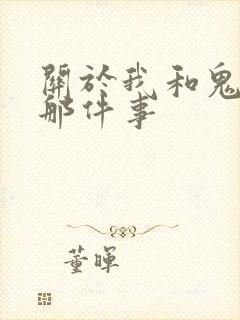 關於我和鬼
那件事
董暉